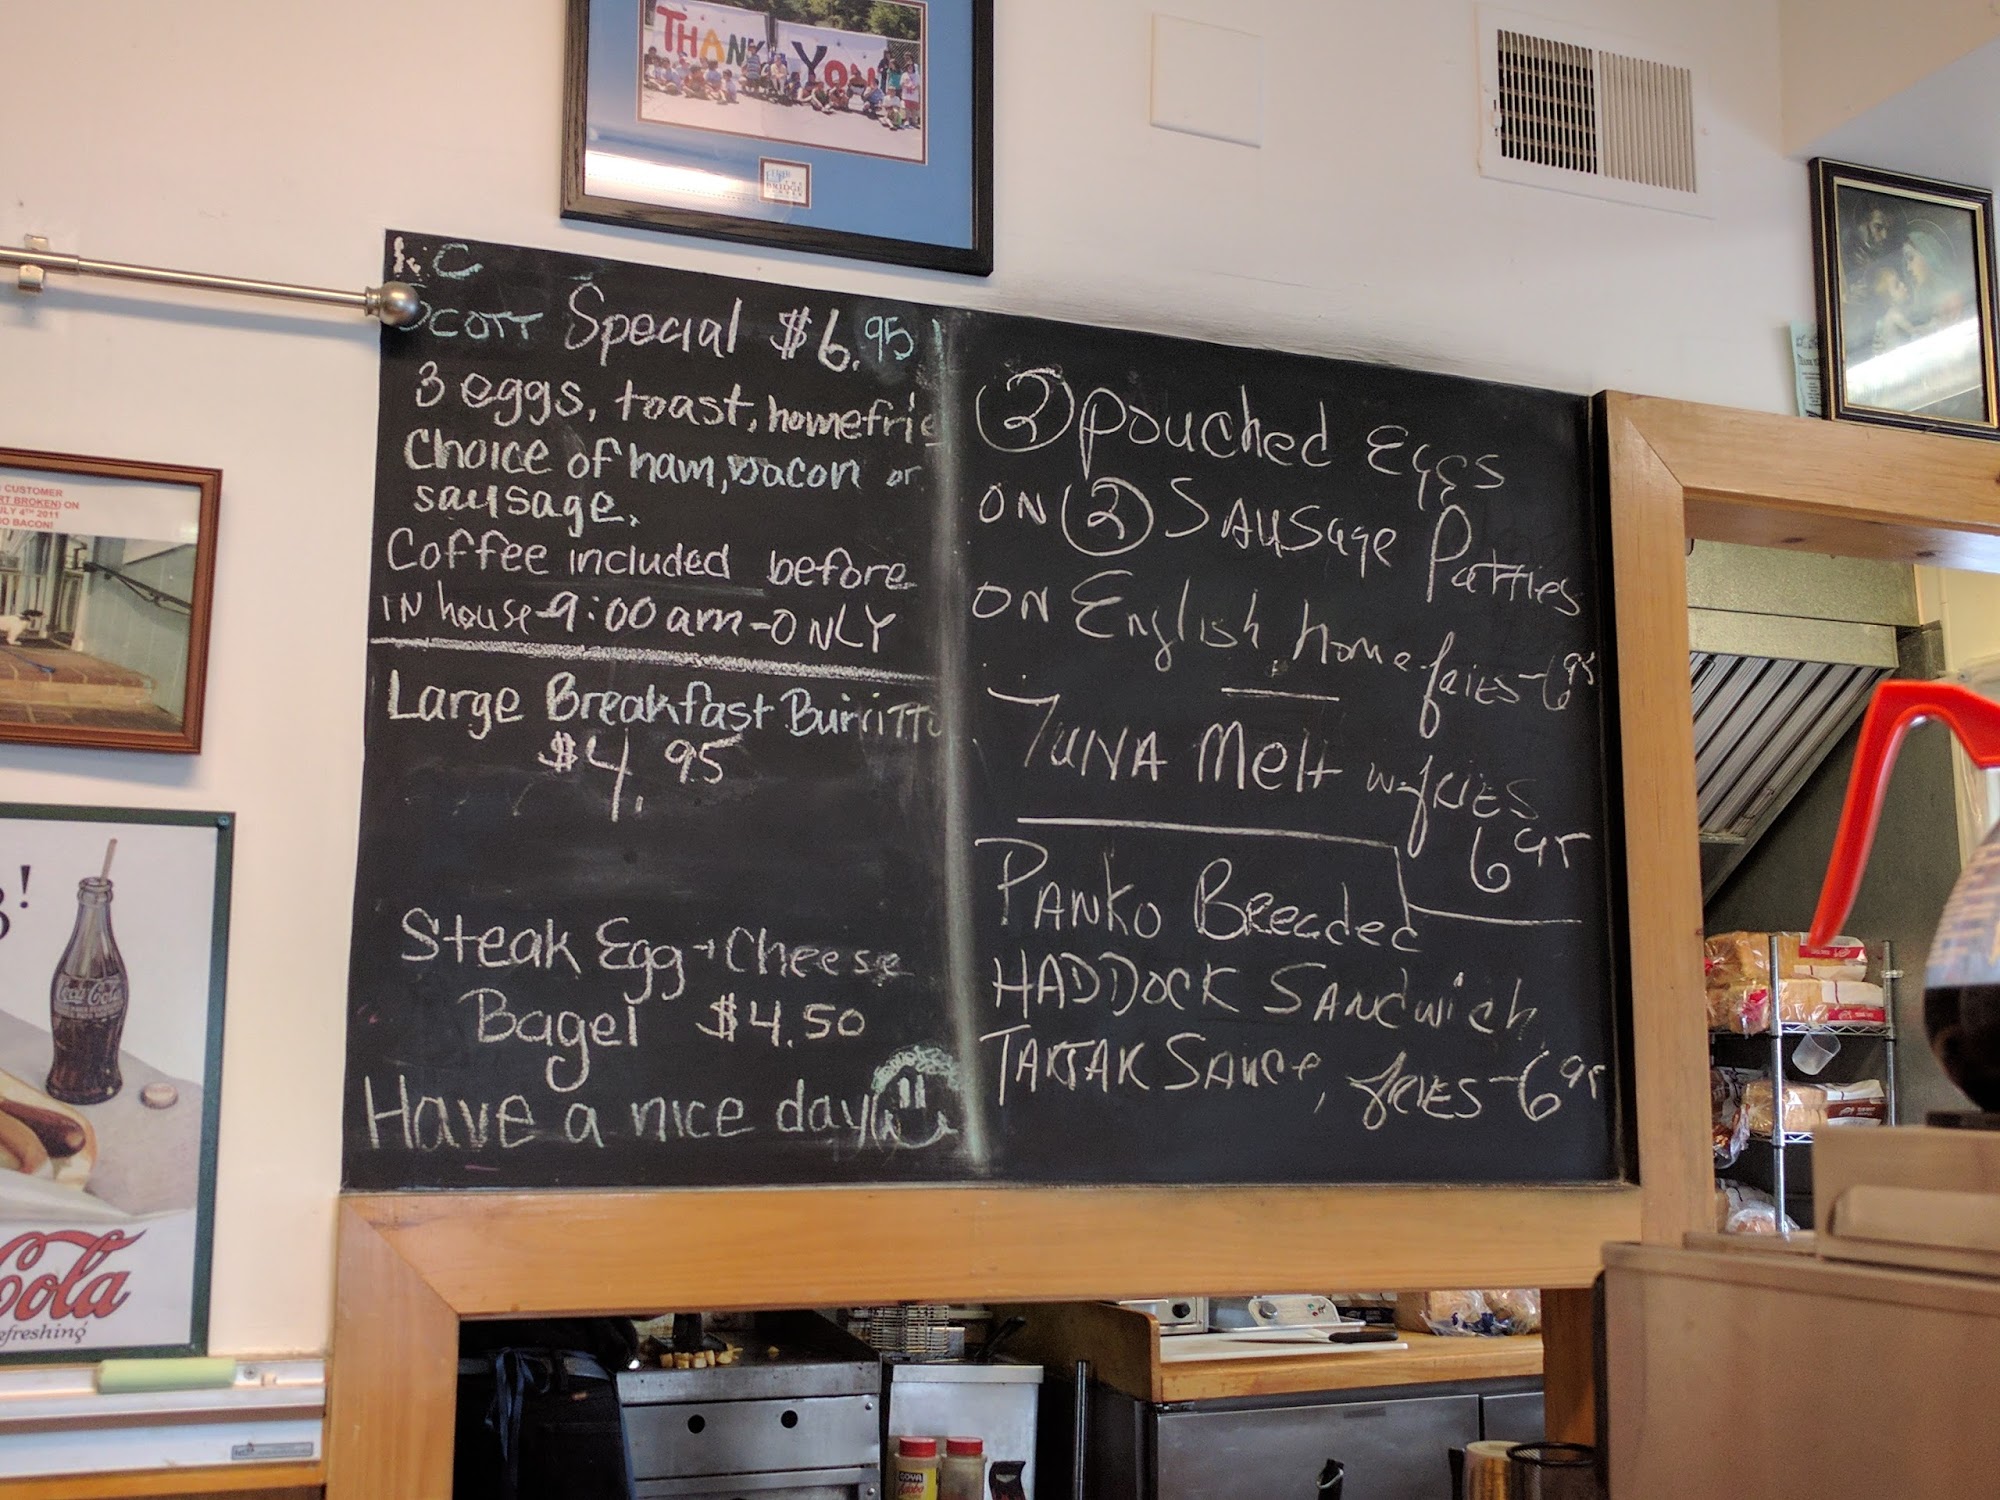 THANK YOU
THE
BRIDGE
K.C
SCOTT Special $6.95
3 eggs, toast, homefrie
choice of ham, bacon or
sausage.
Coffee included before
IN house-9:00 am-ONLY
Large Breakfast Burritto
$4.95
Steak Egg + Cheese
Bagel $4.50
Have a nice day
2 pouched Eggs
ON 2 SAUSage Patties
ON English, home fries-6 95
TUNA Melt w-fries
6 95
PANKO Breaded
HADDOCK SANdwich
TARTAR SAUCe, fries-6 95
CUSTOMER
RT BROKEN) ON
ULY 4TH 2011
O BACON!
!
Coca-Cola
Cola
efreshing
GOYA
Adobo